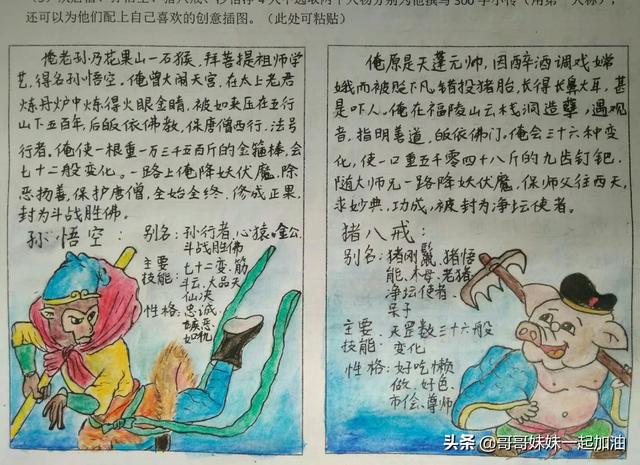 还可以为他们配上自己喜欢的创意插图。（此处可粘贴）
俺老孙乃花果山一石猴，拜菩提祖师学
艺，得名孙悟空。俺曾大闹天宫，在太上老君
炼丹炉中炼得火眼金睛，被如来压在五行
山下五百年，后皈依佛教，保唐僧西行，法号
行者。俺使一根重一万三千五百斤的金箍棒，会
七十二般变化。一路上俺降妖伏魔，除
恶扬善，保护唐僧，全始全终，修成正果，
封为斗战胜佛。
孙悟空：
别名：孙行者、心猿、金公、
斗战胜佛
主要
技能：
七十二变、筋
斗云、大品天
仙决
性格：忠诚、
嫉恶
如仇
俺原是天蓬元帅，因醉酒调戏嫦
娥而被贬下凡，错投猪胎，长得长鼻大耳，甚
是吓人。俺在福陵山云栈洞造孽，遇观
音，指明善道，皈依佛门。俺会三十六种变
化，使一口重五千零四十八斤的九齿钉钯，
随大师兄一路降妖伏魔，保师父往西天，
求妙典，功成，被封为净坛使者。
猪八戒：
别名：猪刚鬣、猪悟
能、木母、老猪、
净坛使者、
呆子
主要
技能：
天罡数三十六般
变化
性格：好吃懒
做、好色、
市侩、尊师
头条 @哥哥妹妹一起加油